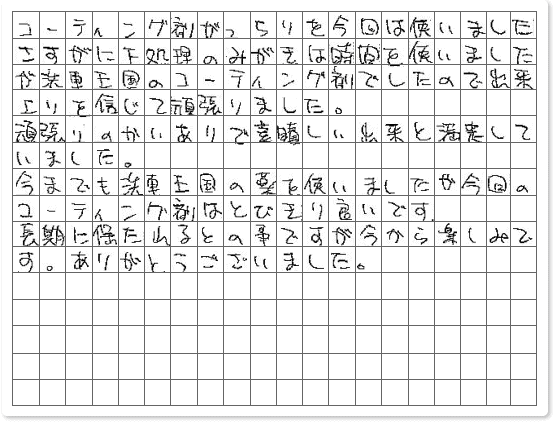 コーティング剤がっちりを今回は使いました
さすがに下処理のみがきは時間を使いました
が洗車王国のコーティング剤でしたので出来
上りを信じて頑張りました。
頑張りのかいありで素晴しい出来と満足して
いました。
今までも洗車王国の薬を使いましたが今回の
コーティング剤はとびきり良いです
長期に保たれるとの事ですが今から楽しみで
す。ありがとうございました。